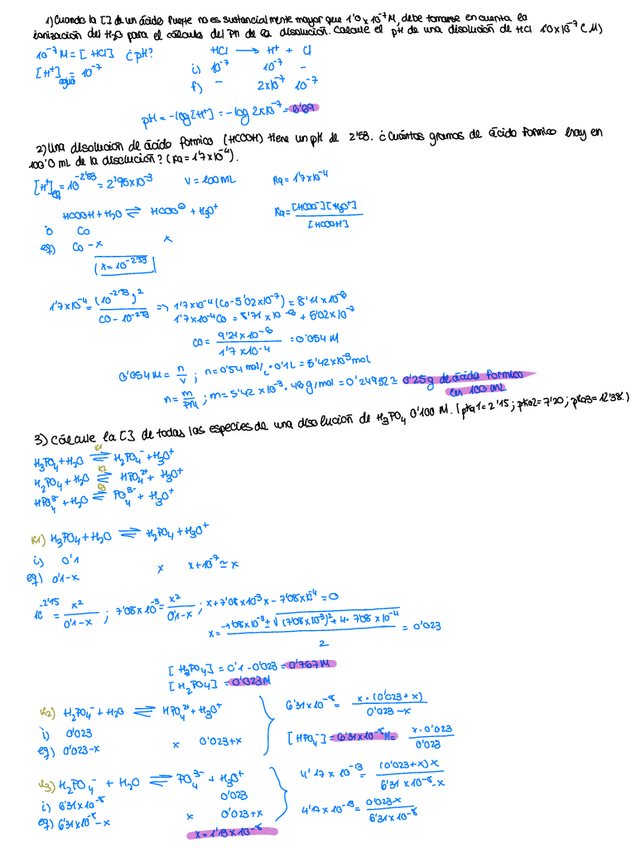 1) Cuando la [] de un ácido fuerte no es sustancialmente mayor que 1'0 x 10⁻⁷ M, debe tomarse en cuenta la
ionización del H₂O para el cálculo del pH de la disolución. Calcule el pH de una disolución de HCl 1'0x10⁻⁷ (M)
10⁻⁷ M = [HCl] ¿pH? HCl → H⁺ + Cl
[H⁺]agua = 10⁻⁷ i) 10⁻⁷ 10⁻⁷ -
f) - 2x10⁻⁷ 10⁻⁷
pH = -log[H⁺] = -log 2x10⁻⁷ = 6'69
2) Una disolución de ácido fórmico (HCOOH) tiene un pH de 2'53. ¿Cuántos gramos de ácido fórmico hay en
100'0 mL de la disolución? (Ka = 1'7x10⁻⁴).
[H⁺]eq = 10⁻²'⁵³ = 2'95x10⁻³ V = 100 mL Ka = 1'7x10⁻⁴
HCOOH + H₂O ⇌ HCOO⁻ + H₃O⁺ Ka = [HCOO⁻][H₃O⁺] / [HCOOH]
i) Co
eq) Co - x x
(x = 10⁻²'⁵³)
1'7x10⁻⁴ = (10⁻²'⁵³)² / Co - 10⁻²'⁵³ => 1'7x10⁻⁴ (Co - 5'02x10⁻⁷) = 8'71 x 10⁻⁶
1'7x10⁻⁴ Co = 8'71 x 10⁻⁶ + 5'02x10⁻⁷
Co = 9'21 x 10⁻⁶ / 1'7 x 10⁻⁴ = 0'054 M
0'054 M = n / V ; n = 0'54 mol/L · 0'1L = 5'42x10⁻³ mol
n = m / PM ; m = 5'42 x 10⁻³ · 46 g/mol = 0'24932 ≅ 0'25 g de ácido fórmico
en 100 mL
3) Calcule la [] de todas las especies de una disolución de H₃PO₄ 0'100 M. (pKa1 = 2'15; pKa2 = 7'20; pKa3 = 12'38).
H₃PO₄ + H₂O ⇌ K1 H₂PO₄⁻ + H₃O⁺
H₂PO₄ + H₂O ⇌ K2 HPO₄²⁻ + H₃O⁺
HPO₄²⁻ + H₂O ⇌ PO₄³⁻ + H₃O⁺
K1) H₃PO₄ + H₂O ⇌ H₂PO₄ + H₃O⁺
i) 0'1
eq) 0'1-x x x + 10⁻⁷ ≃ x
10⁻²'¹⁵ = x² / 0'1-x ; 7'08x10⁻³ = x² / 0'1-x ; x + 7'08x10⁻³ x - 7'08x10⁻⁴ = 0
x = -7'08x10⁻³ ± √(7'08x10⁻³)² + 4 · 7'08x10⁻⁴ / 2 = 0'023
[H₃PO₄] = 0'1 - 0'023 = 0'767 M
[H₂PO₄] = 0'023 M
K2) H₂PO₄⁻ + H₂O ⇌ HPO₄²⁻ + H₃O⁺ 6'31x10⁻⁸ = x · (0'023 + x) / 0'023 - x
i) 0'023
eq) 0'023-x x 0'023+x [HPO₄⁻] = 6'31x10⁻⁸ M = x · 0'023 / 0'023
K3) H₂PO₄⁻ + H₂O ⇌ PO₄³⁻ + H₃O⁺ 4'17 x 10⁻¹³ = (0'023+x) x / 6'31 x 10⁻⁸ - x
i) 6'31x10⁻⁸ 0'023
eq) 6'31x10⁻⁸ - x x 0'023+x 4'17 x 10⁻¹³ = 0'023 x / 6'31x10⁻⁸
x = 1'13 x 10⁻⁸